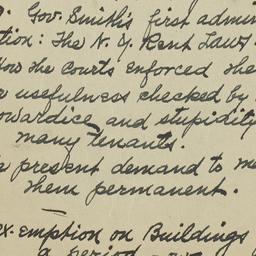 Gov. Smith's first admin
tion: The N. Y. Rent Laws.
How the Courts enforced the
usefulness checked by
cowardice and stupidity
many tenants.
present demand to ma
them permanent.
exemption on Buildings
a period